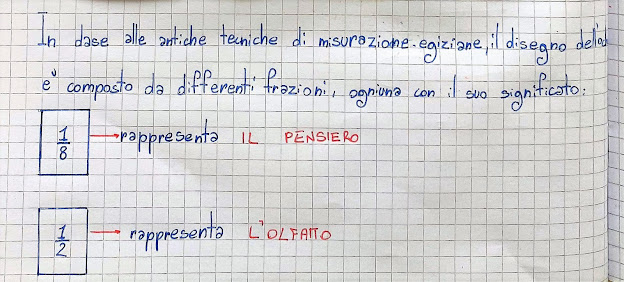 In base alle antiche tecniche di misurazione egiziane, il disegno
e' composto da differenti frazioni, ogniuna con il suo significato:
1/8 → rappresenta IL PENSIERO
1/2 → rappresenta L'OLFATTO